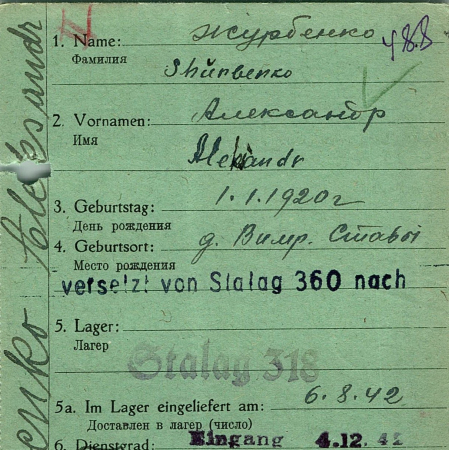 1. Name: Журбенко 488
Фамилия
Shurbenko
2. Vornamen: Александр
Имя
Alexandr
3. Geburtstag: 1.1.1920г
День рождения
4. Geburtsort: д. Вимр. Ставы
Место рождения
versetzt von Stalag 360 nach
5. Lager:
Лагер
Stalag 318
5a. Im Lager eingeliefert am: 6.8.42
Доставлен в лагер (число)
6. Dienstgrad: Eingang 4.12.42
enko Alexandr